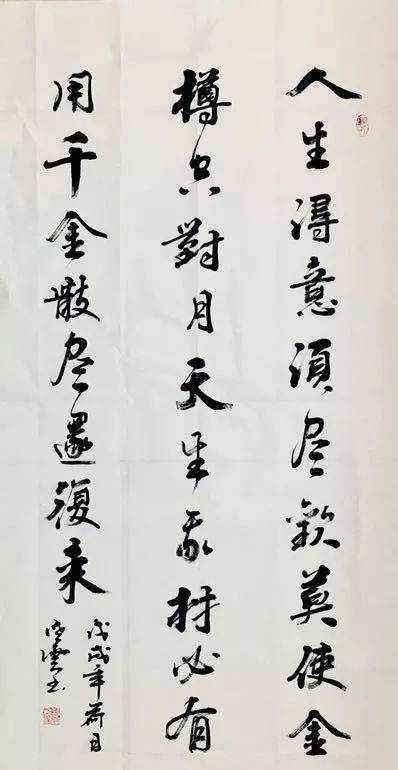 人生得意須尽歡莫使金
樽空對月天生我材必有
用千金散尽還復来
戊戌年荷月
书